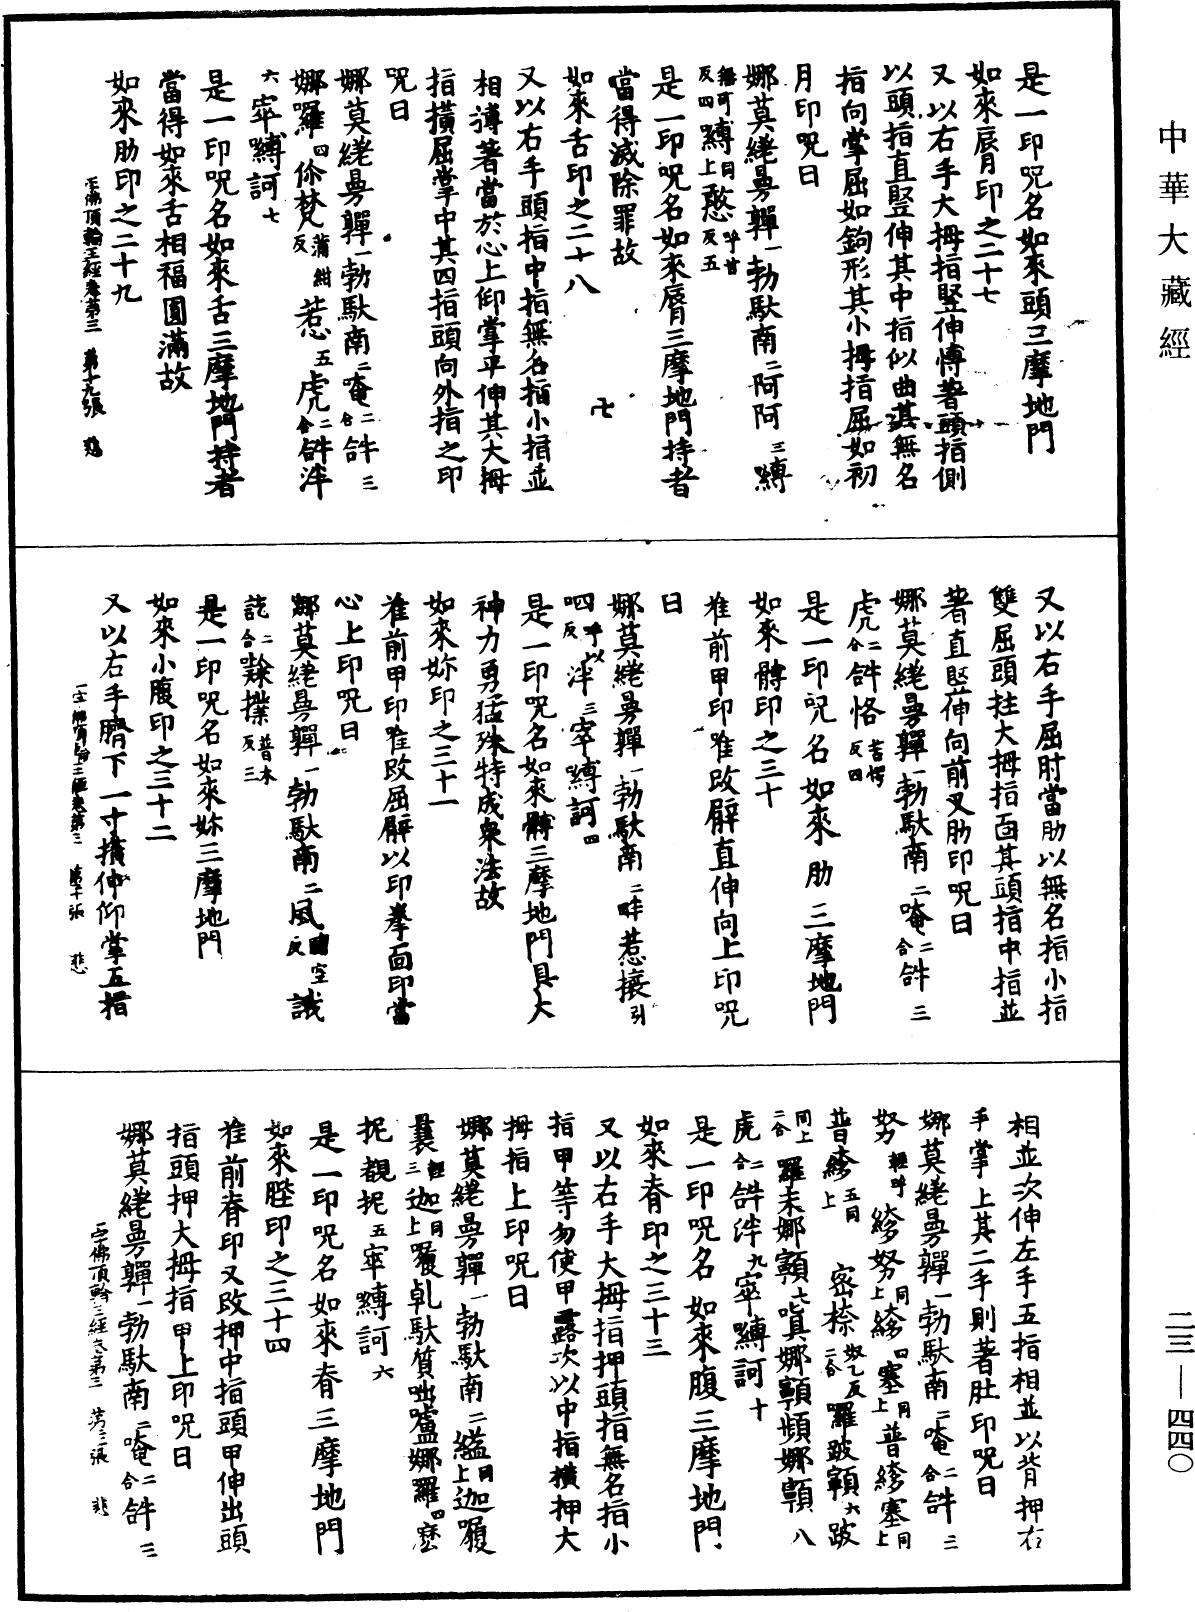 中華大藏經
是一印呪名如來頭三摩地門
如來脣印之二十七
又以右手大拇指竪伸愽著頭指側
以頭指直竪伸其中指似曲其無名
指向掌屈如鉤形其小拇指屈如初
月印呪曰
娜莫繞曼亸一勃馱南二阿阿三縛
無可反四縛同上憨呼甘反五
是一印呪名如來脣三摩地門持者
當得滅除罪故
如來舌印之二十八
又以右手頭指中指無名指小指並
相愽著當於心上仰掌平伸其大拇
指撗屈掌中其四指頭向外指之印
呪曰
娜莫繞曼亸一勃馱南二唵二合㖃三
娜囉四伱梵蒲紺反惹五虎二合㖃泮
六窣縛訶七
是一印呪名如來舌三摩地門持者
當得如來舌相福圓滿故
如來肋印之二十九
一字佛頂輪王經卷第三 第十九張 悲
又以右手屈肘當肋以無名指小指
雙屈頭拄大拇指面其頭指中指並
著直竪伸向前叉肋印呪曰
娜莫繞曼亸一勃馱南二唵二合㖃三
虎二合㖃恪苦愕反四
是一印呪名如來肋三摩地門
如來髆印之三十
准前甲印唯改臂直伸向上印呪
曰
娜莫繞曼亸一勃馱南二㖃惹攘引
呬呼以反泮三窣縛訶四
是一印呪名如來髆三摩地門具大
神力勇猛殊特成衆法故
如來妳印之三十一
准前甲印唯改屈臂以印拳面印當
心上印呪曰
娜莫繞曼亸一勃馱南二風空反誐
訖二合㪍撲普木反三
是一印呪名如來妳三摩地門
如來小腹印之三十二
又以右手臍下一寸撗伸仰掌五指
一字佛頂輪王經卷第三 第二十張 悲
相並次伸左手五指相並以背押右
手掌上其二手則著肚印呪曰
娜莫繞曼亸一勃馱南二唵二合㖃三
努輕呼繆努上同繆四塞上同普繆塞上同
普繆上五同密㮈奴乙反二合囉跛顐六跛
同上二合羅未娜顐七嗔娜顐頻娜顐八
虎二合㖃泮九窣縛訶十
是一印呪名如來腹三摩地門
如來脊印之三十三
又以右手大拇指押頭指無名指小
指甲等勿使甲露次以中指撗押大
拇指上印呪曰
娜莫繞曼亸一勃馱南二縊上同迦履
曩輕三迦上同履乹馱質咄嚧娜羅四麽
抳覩抳五窣縛訶六
是一印呪名如來脊三摩地門
如來䏶印之三十四
准前脊印又改押中指頭甲伸出頭
指頭押大拇指甲上印呪曰
娜莫繞曼亸一勃馱南二唵二合㖃三
一字佛頂輪王經卷第三 第二一張 悲
二三—四四〇